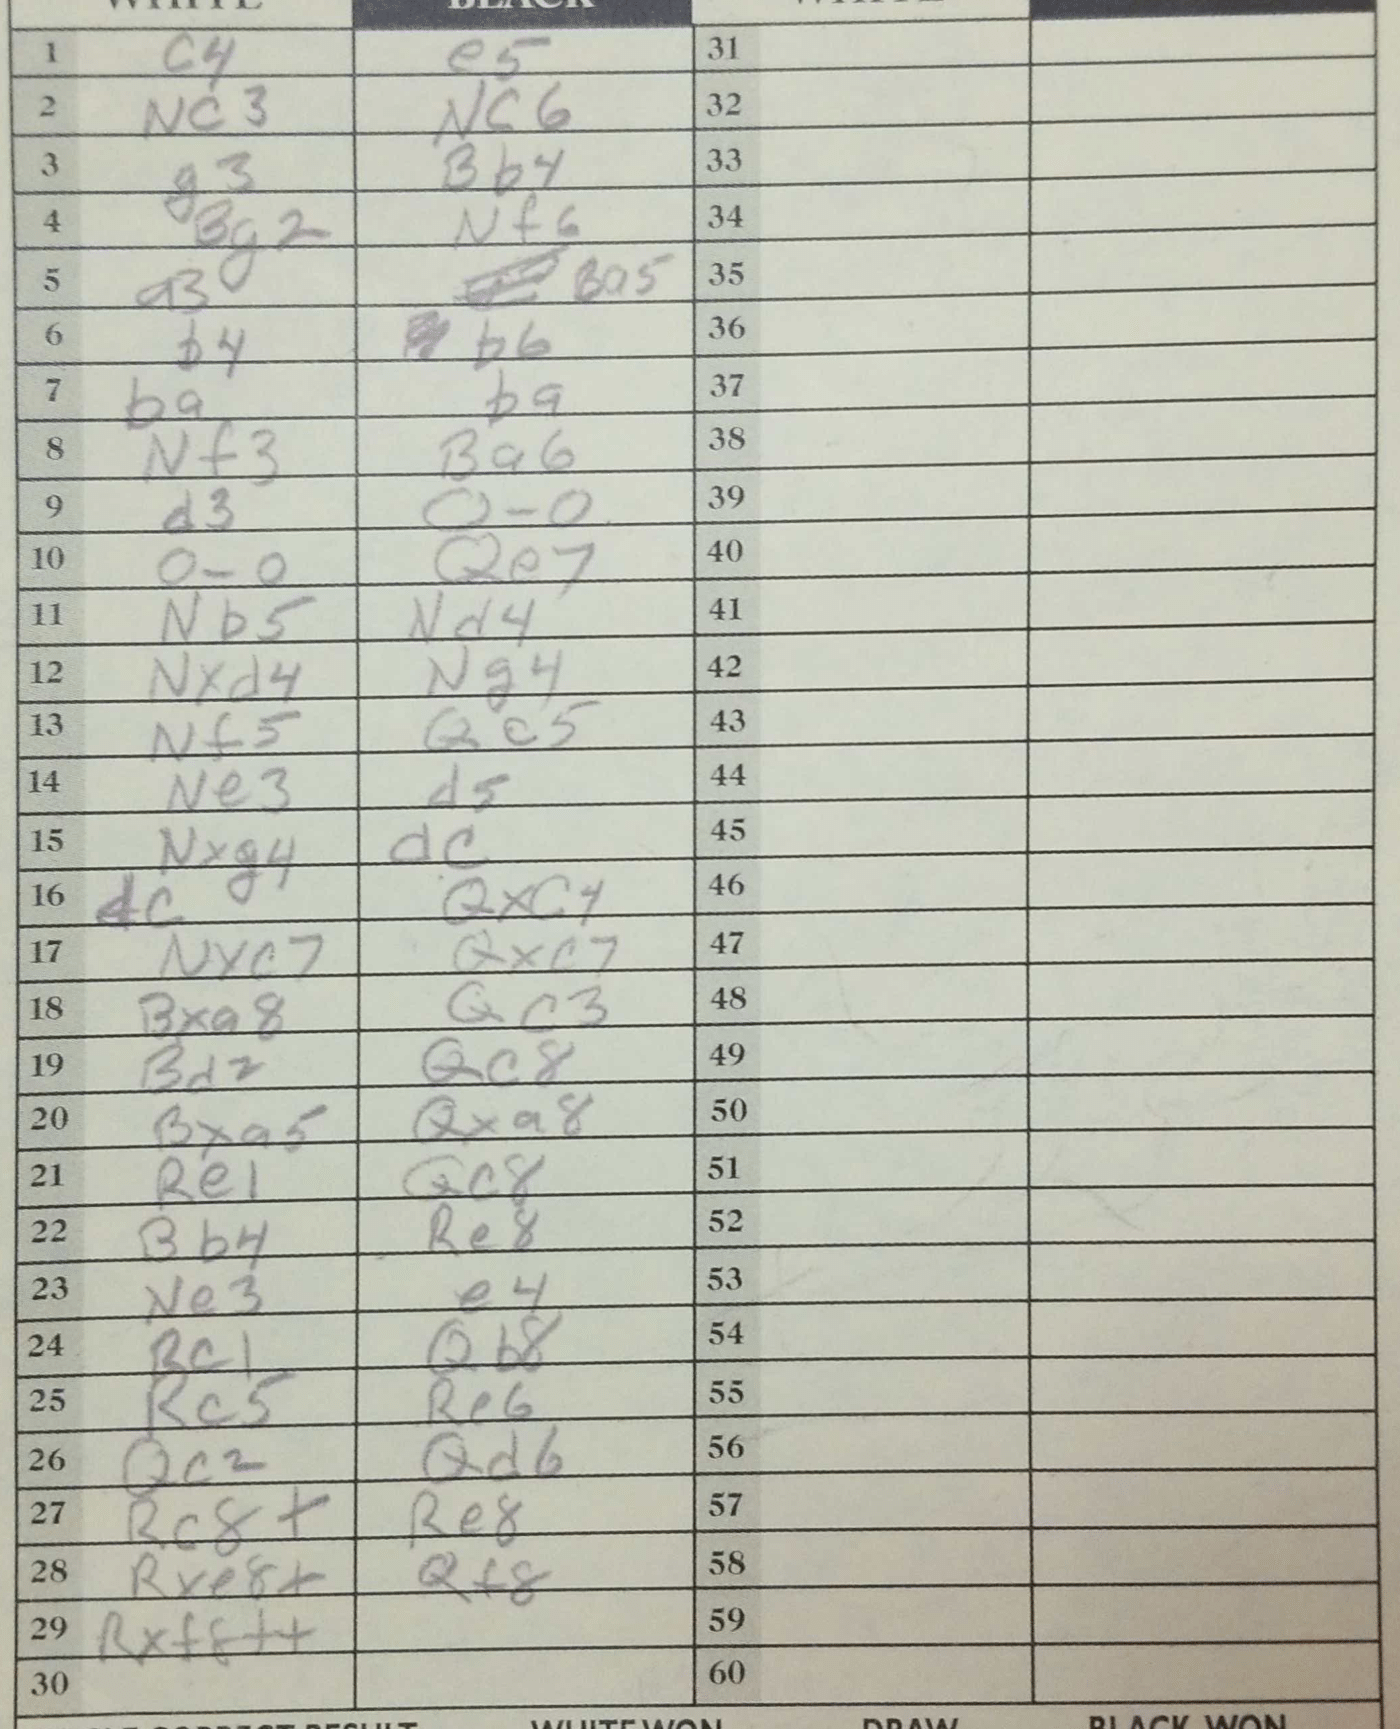 WHITE BLACK WHITE
1 C4 e5 31
2 NC3 NC6 32
3 g3 Bb4 33
4 Bg2 Nf6 34
5 a3 Ba5 35
6 b4 b6 36
7 ba ba 37
8 Nf3 Ba6 38
9 d3 O-O 39
10 O-O Qe7 40
11 Nb5 Nd4 41
12 Nxd4 Ng4 42
13 Nf5 Qc5 43
14 Ne3 d5 44
15 Nxg4 dC 45
16 dC QxC4 46
17 Nxc7 Qxc7 47
18 Bxa8 Qc3 48
19 Bd2 Qc8 49
20 Bxa5 Qxa8 50
21 Re1 Qc8 51
22 Bb4 Re8 52
23 Ne3 e4 53
24 Rc1 Qb8 54
25 Rc5 Re6 55
26 Qc2 Qd6 56
27 Rc8+ Re8 57
28 Rxe8+ Qf8 58
29 Rxf8++ 59
30 60
CORRECT RESULT WHITE WON DRAW BLACK WON